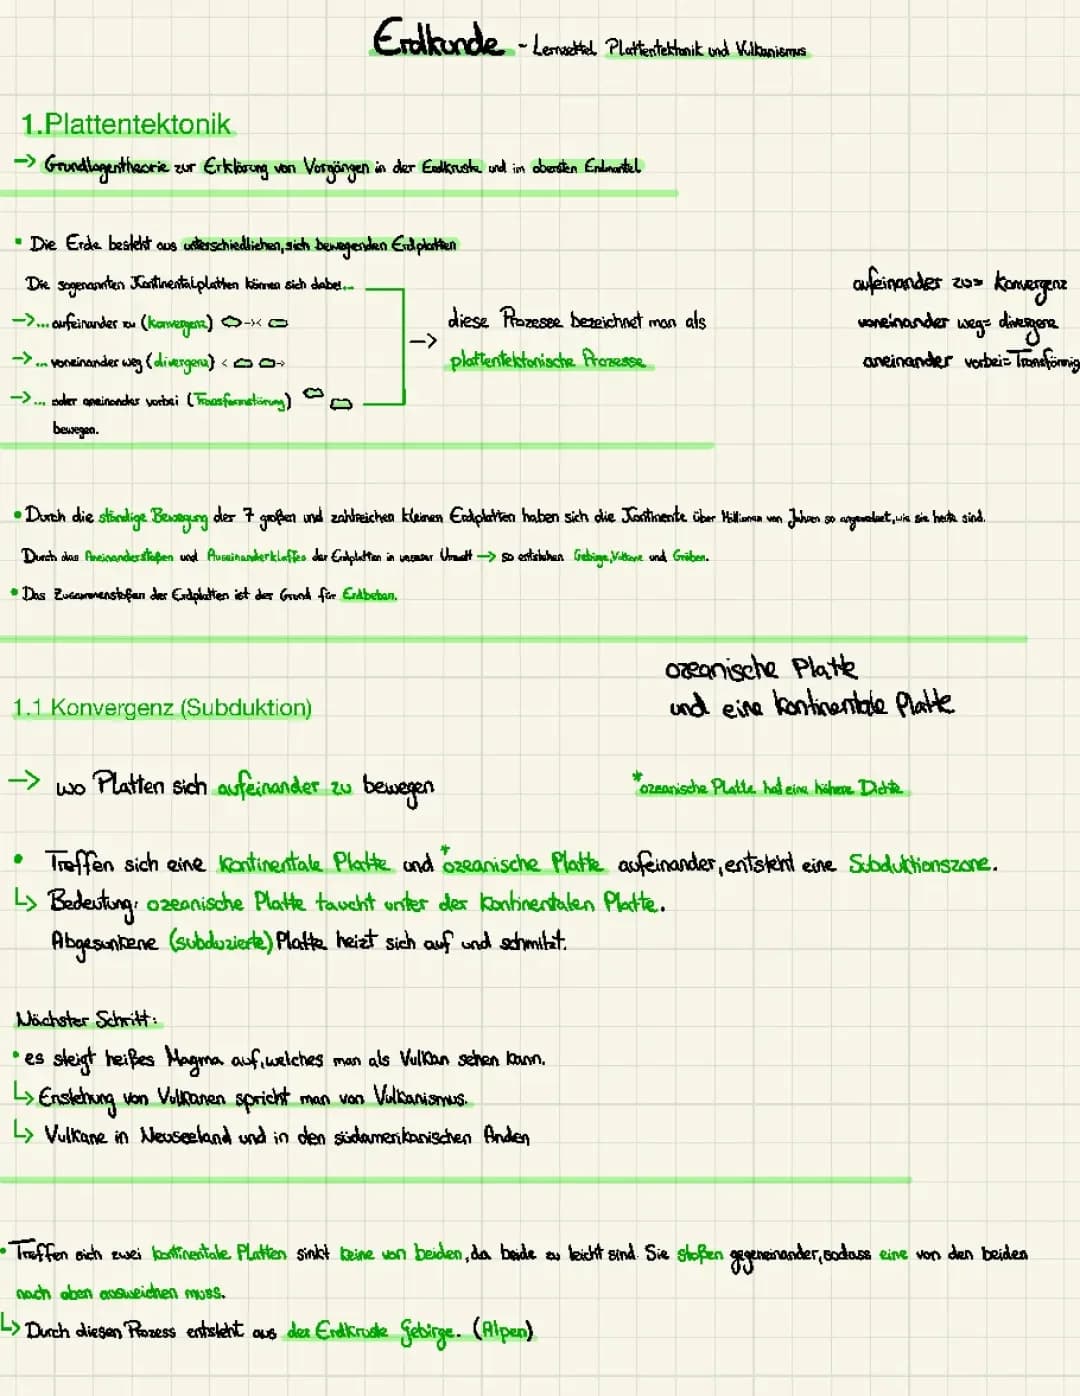 Erdkunde - Lernzettel Plattentektonik und Vulkanismus
1.Plattentektonik
-> Grundlagentheorie zur Erklärung von Vorgängen in der Erdkruste und im obersten Erdmantel
• Die Erde besteht aus unterschiedlichen, sich bewegenden Erdplatten
Die sogenannten Kontinentalplatten können sich dabei...
->... aufeinander zu (konvergenz)
->... voneinander weg (divergenz)
->... oder aneinander vorbei (Transformstörung)
bewegen.
-> diese Prozesse bezeichnet man als
plattentektonische Prozesse
aufeinander zu= konvergenz
voneinander weg= divergenz
aneinander vorbei= Transförmig
• Durch die ständige Bewegung der 7 großen und zahlreichen kleinen Erdplatten haben sich die Kontinente über Millionen von Jahren so angeordnet, wie sie heute sind.
Durch das Aneinanderstoßen und Auseinanderklaffen der Erdplatten in unserer Umwelt -> so entstehen Gebirge, Vulkane und Gräben.
• Das Zusammenstoßen der Erdplatten ist der Grund für Erdbeben.
1.1 Konvergenz (Subduktion)
ozeanische Platte
und eine kontinentale Platte
-> wo Platten sich aufeinander zu bewegen
*ozeanische Platte hat eine höhere Dichte
• Treffen sich eine kontinentale Platte und *ozeanische Platte aufeinander, entsteht eine Subduktionszone.
↳ Bedeutung: ozeanische Platte taucht unter der kontinentalen Platte.
Abgesunkene (subduzierte) Platte heizt sich auf und schmilzt.
Nächster Schritt:
• es steigt heißes Magma auf, welches man als Vulkan sehen kann.
↳ Enstehung von Vulkanen spricht man von Vulkanismus.
↳ Vulkane in Neuseeland und in den südamerikanischen Anden
• Treffen sich zwei kontinentale Platten sinkt keine von beiden, da beide zu leicht sind. Sie stoßen gegeneinander, sodass eine von den beiden
nach oben ausweichen muss.
↳ Durch diesen Prozess entsteht aus der Erdkruste Gebirge. (Alpen)